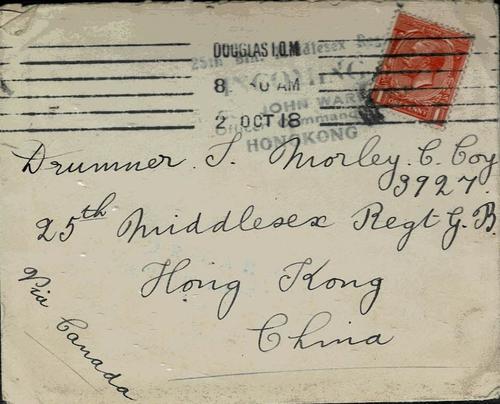 DOUGLAS I.O.M
8 AM
2 OCT 18
25th Middlesex Reg
INCOMING
JOHN WAR
Command
HONGKONG
Drummer. S. Morley. C. Coy
3927.
25th Middlesex Regt G. B.
Hong Kong
China
Via Canada